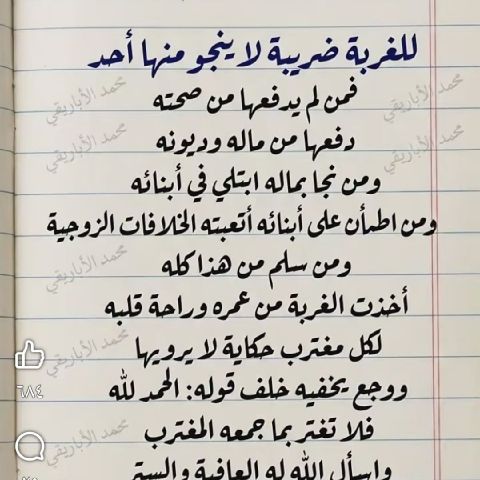 للغربة ضريبة لا ينجو منها أحد
فمن لم يدفعها من صحته
دفعها من ماله وديونه
ومن نجا بماله ابتلي في أبنائه
ومن اطمأن على أبنائه أتعبته الخلافات الزوجية
ومن سلم من هذا كله
أخذت الغربة من عمره وراحة قلبه
لكل مغترب حكاية لا يرويها
ووجع يخفيه خلف قوله: الحمد لله
فلا تغتر بما جمعه المغترب
واسأل الله له العافية والستر
محمد الأباريقي
محمد الأباريقي
محمد الأباريقي
محمد الأباريقي
محمد الأباريقي
محمد الأباريقي
محمد الأباريقي
٦٨٤